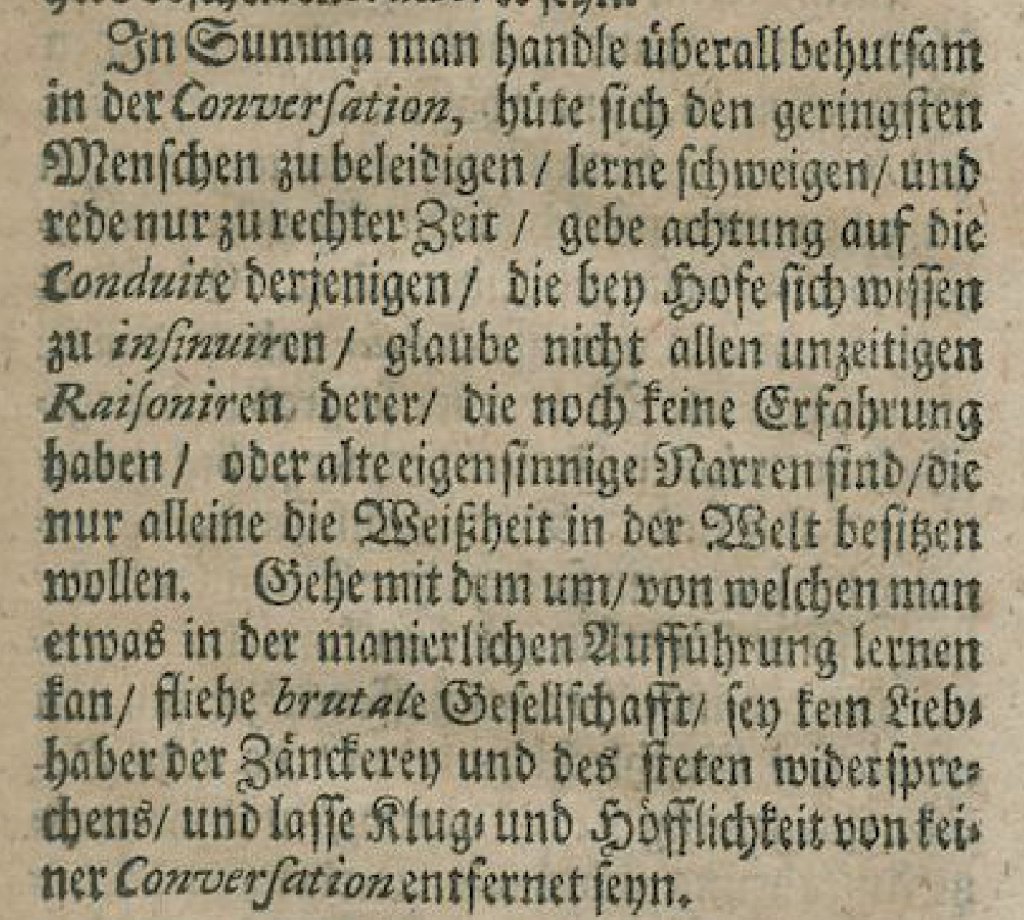 In Summa man handle überall behutsam
in der Conversation, hüte sich den geringsten
Menschen zu beleidigen / lerne schweigen / und
rede nur zu rechter Zeit / gebe achtung auf die
Conduite derjenigen / die bey Hofe sich wissen
zu insinuiren / glaube nicht allen unzeitigen
Raisoniren derer / die noch keine Erfahrung
haben / oder alte eigensinnige Narren sind / die
nur alleine die Weißheit in der Welt besitzen
wollen. Gehe mit dem um / von welchen man
etwas in der manierlichen Aufführung lernen
kan / fliehe brutale Gesellschafft / sey kein Lieb-
haber der Zänckerey und des steten widerspre-
chens / und lasse Klug- und Höfflichkeit von kei-
ner Conversation entfernet seyn.